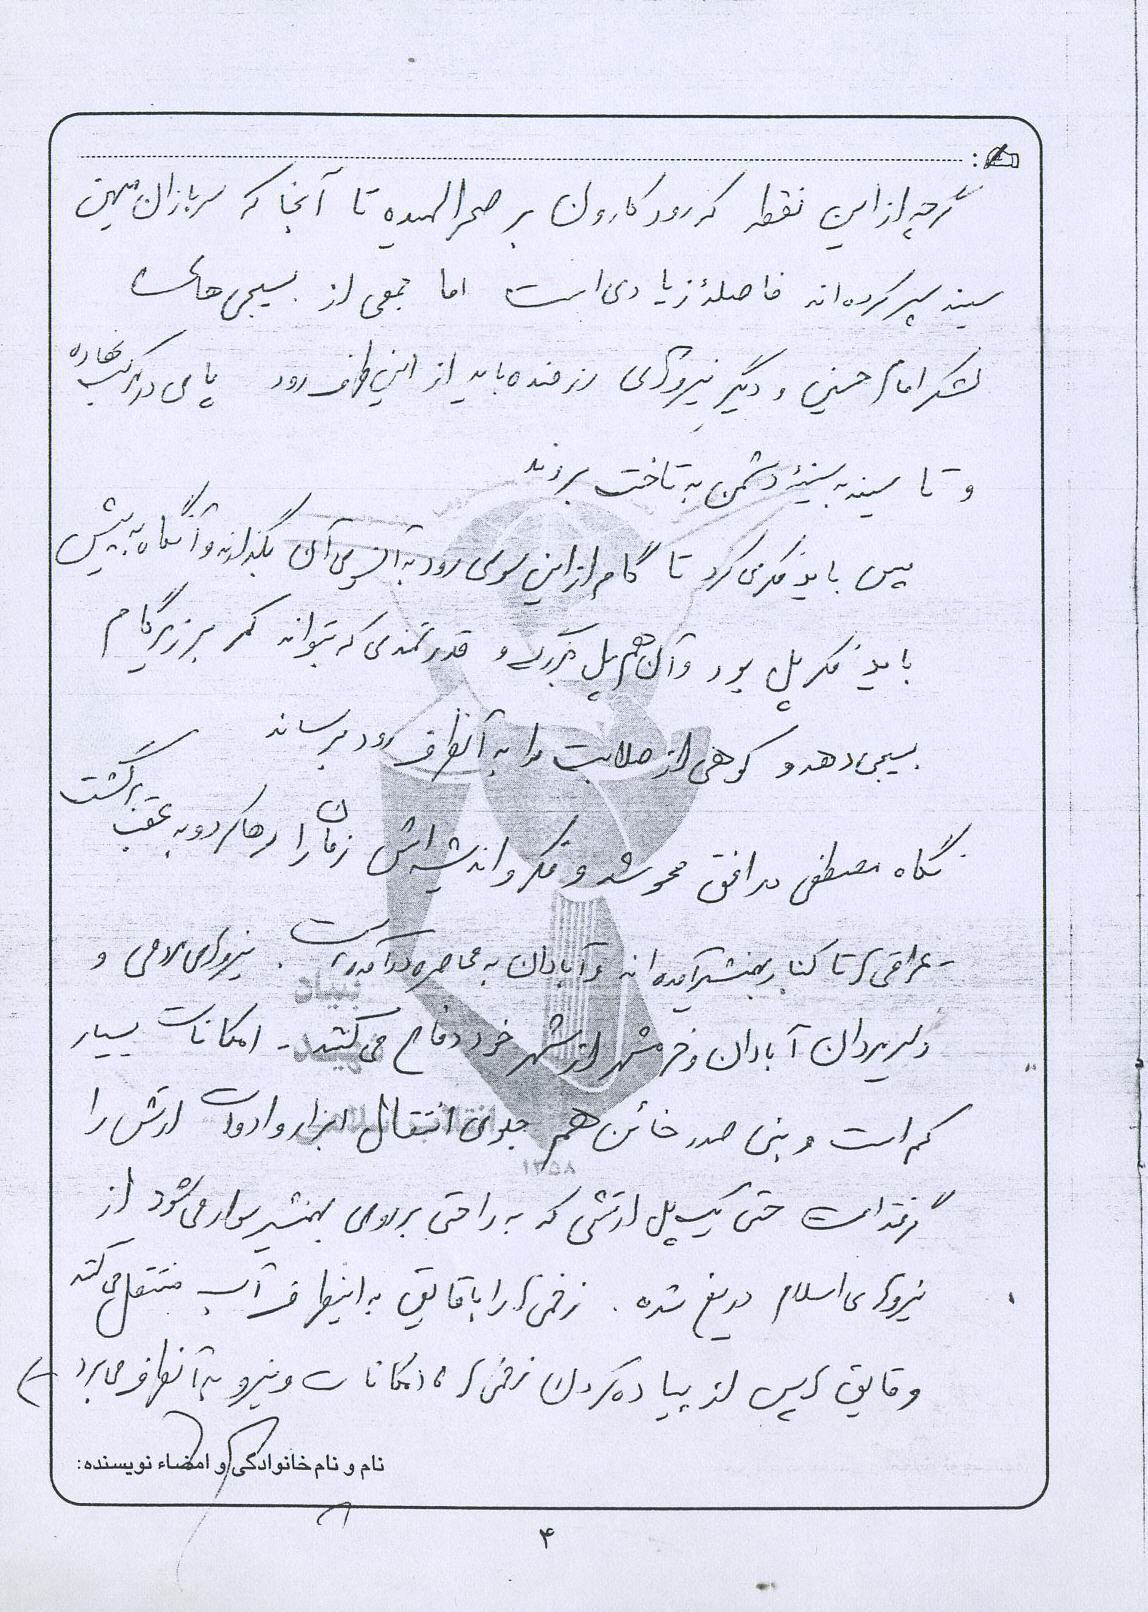 گرچه از این نقطه که رود کارون بر صحرا لمیده تا آنجا که سربازان میهن
سینه سپر کرده‌اند فاصلهٔ زیادی است اما جمعی از بسیجی‌های
لشکر امام حسین و دیگر نیروهای رزمنده باید از این طرف رود پا می در رکب نهاده
و تا سینه به سینهٔ دشمن به تاخت بروند
پس باید فکری کرد تا گام از این سوی رود به آن سوی آن بگذارند و آنگاه به پیش
باید فکر پل بود و آن هم پل بزرگ و قدرتمندی که بتواند کمر بر زیر گام
بسیجی دهد و کوهی از صلابت را به آنطرف رود برساند
نگاه مصطفی در افق محو شد و فکر و اندیشه‌اش زمان را رها کرد و به عقب برگشت
- عراقی‌ها تا کنار بهمنشیر آمده‌اند و آبادان به محاصره درآمده است . نیروهای مردمی و
دلیرمردان آبادان و خرمشهر از شهر خود دفاع می‌کنند - امکانات بسیار
کم است و بنی صدر خائن هم جلوی انتقال ابزار و ادوات ارتش را
گرفته است حتی یک پل ارتشی که به راحتی بر روی بهمنشیر سوار می‌شود از
نیروهای اسلام دریغ شده . زخمی‌ها را با قایق به اینطرف آب منتقل می‌کنند
و قایق‌ها پس از پیاده کردن زخمی‌ها امکانات و نیرو به آنطرف می‌برد
نام و نام خانوادگی و امضاء نویسنده:
۴
بنیاد
شهید
انقلاب اسلامی
۱۳۵۸